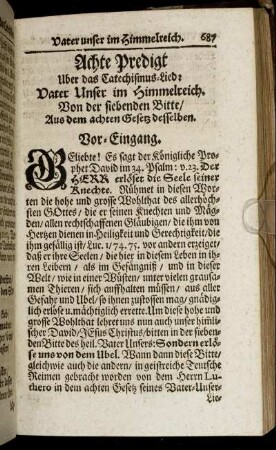 Vater unser im Himmelreich. 687
Achte Predigt
Uber das Catechismus-Lied:
Vater Unser im Himmelreich.
Von der siebenden Bitte/
Aus dem achten Gesetz desselben.
Vor-Eingang.
GEliebte! Es sagt der Königliche Pro-
phet David im 34. Psalm: v. 23. Der
HERR erlöset die Seele seiner
Knechte. Rühmet in diesen Wor-
ten die hohe und grosse Wohlthat des allerhöch-
sten GOttes/ die er seinen Knechten und Mäg-
den/ allen rechtschaffenen Gläubigen/ die ihm von
Hertzen dienen in Heiligkeit und Gerechtigkeit/ die
ihm gefällig ist/ Luc. 1/74.75. vor andern erzeiget/
daß er ihre Seelen/ die hier in diesem Leben in ih-
ren Leibern/ als im Gefängniß/ und in dieser
Welt/ wie in einer Wüsten/ unter vielen grausa-
men Thieren/ sich auffhalten müssen/ aus aller
Gefahr und Ubel/ so ihnen zustossen mag/ gnädig-
lich erlöse u. mächtiglich errette. Um diese hohe und
grosse Wohlthat lehret uns nun auch unser himli-
scher David/ JEsus Christus/ bitten in der sieben-
den Bitte des heil. Vater Unsers: Sondern erlö-
se uns von dem Ubel. Wann dann diese Bitte/
gleichwie auch die andern/ in geistreiche Teutsche
Reimen gebracht worden von dem Herrn Lu-
thero in dem achten Gesetz seines Vater-Unser-
Lie-